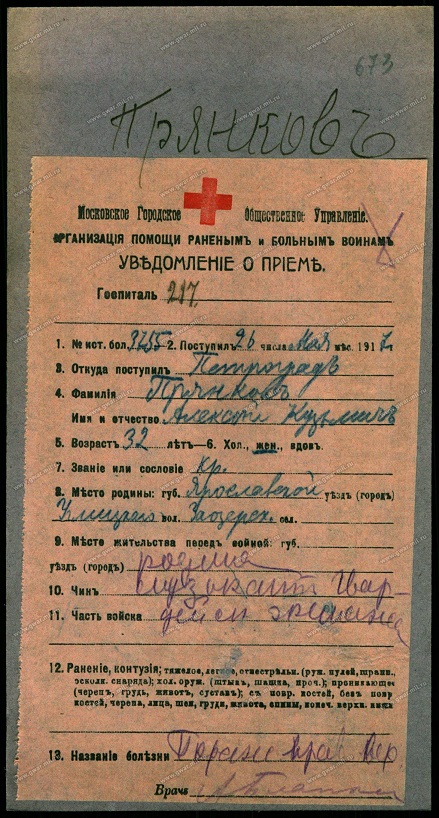 673
Прянковъ
Московское Городское Общественное Управленіе.
ОРГАНИЗАЦІЯ ПОМОЩИ РАНЕНЫМЪ и БОЛЬНЫМЪ ВОИНАМЪ
УВѢДОМЛЕНІЕ О ПРІЕМѢ.
Госпиталь 217.
1. № ист. бол. 3255 2. Поступилъ 26 числа Мая мѣс. 1917г.
3. Откуда поступилъ Петроградъ
4. Фамилія Прянковъ
Имя и отчество Алексѣй Кузьмичъ
5. Возрастъ 32 лѣтъ—6. Хол., жен., вдов.
7. Званіе или сословіе кр.
8. Мѣсто родины: губ. Ярославской уѣздъ (городъ)
вол. Заозерск. сел.
9. Мѣсто жительства передъ войной: губ.
уѣздъ (городъ) родина
10. Чинъ музыкантъ Гвар-
11. Часть войска дейск экипажа
12. Раненіе, контузія; тяжелое, легкое, огнестрѣльн. (руж. пулей, шрапн.,
осколк. снаряда); хол. оруж. (штыкъ, шашка, проч.); проникающее
(черепъ, грудь, животъ, суставъ); съ повр. костей, безъ повр.
костей, черепа, лица, шеи, груди, живота, спины, конеч. верхн. нижн
13. Названіе болѣзни
Врачъ
www.gwar.mil.ru